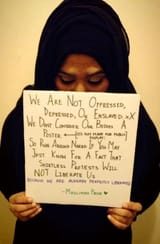 We Are Not Oppressed,
Depressed, Or Enslaved. xX
We Dont Consider Our Bodies A
Poster (its not there for public display)
So Run Around Naked If You May
Just Know For A Fact That
Shirtless Protests Will
Not Liberate Us
Because we are already perfectly liberated
- Muslimah Pride